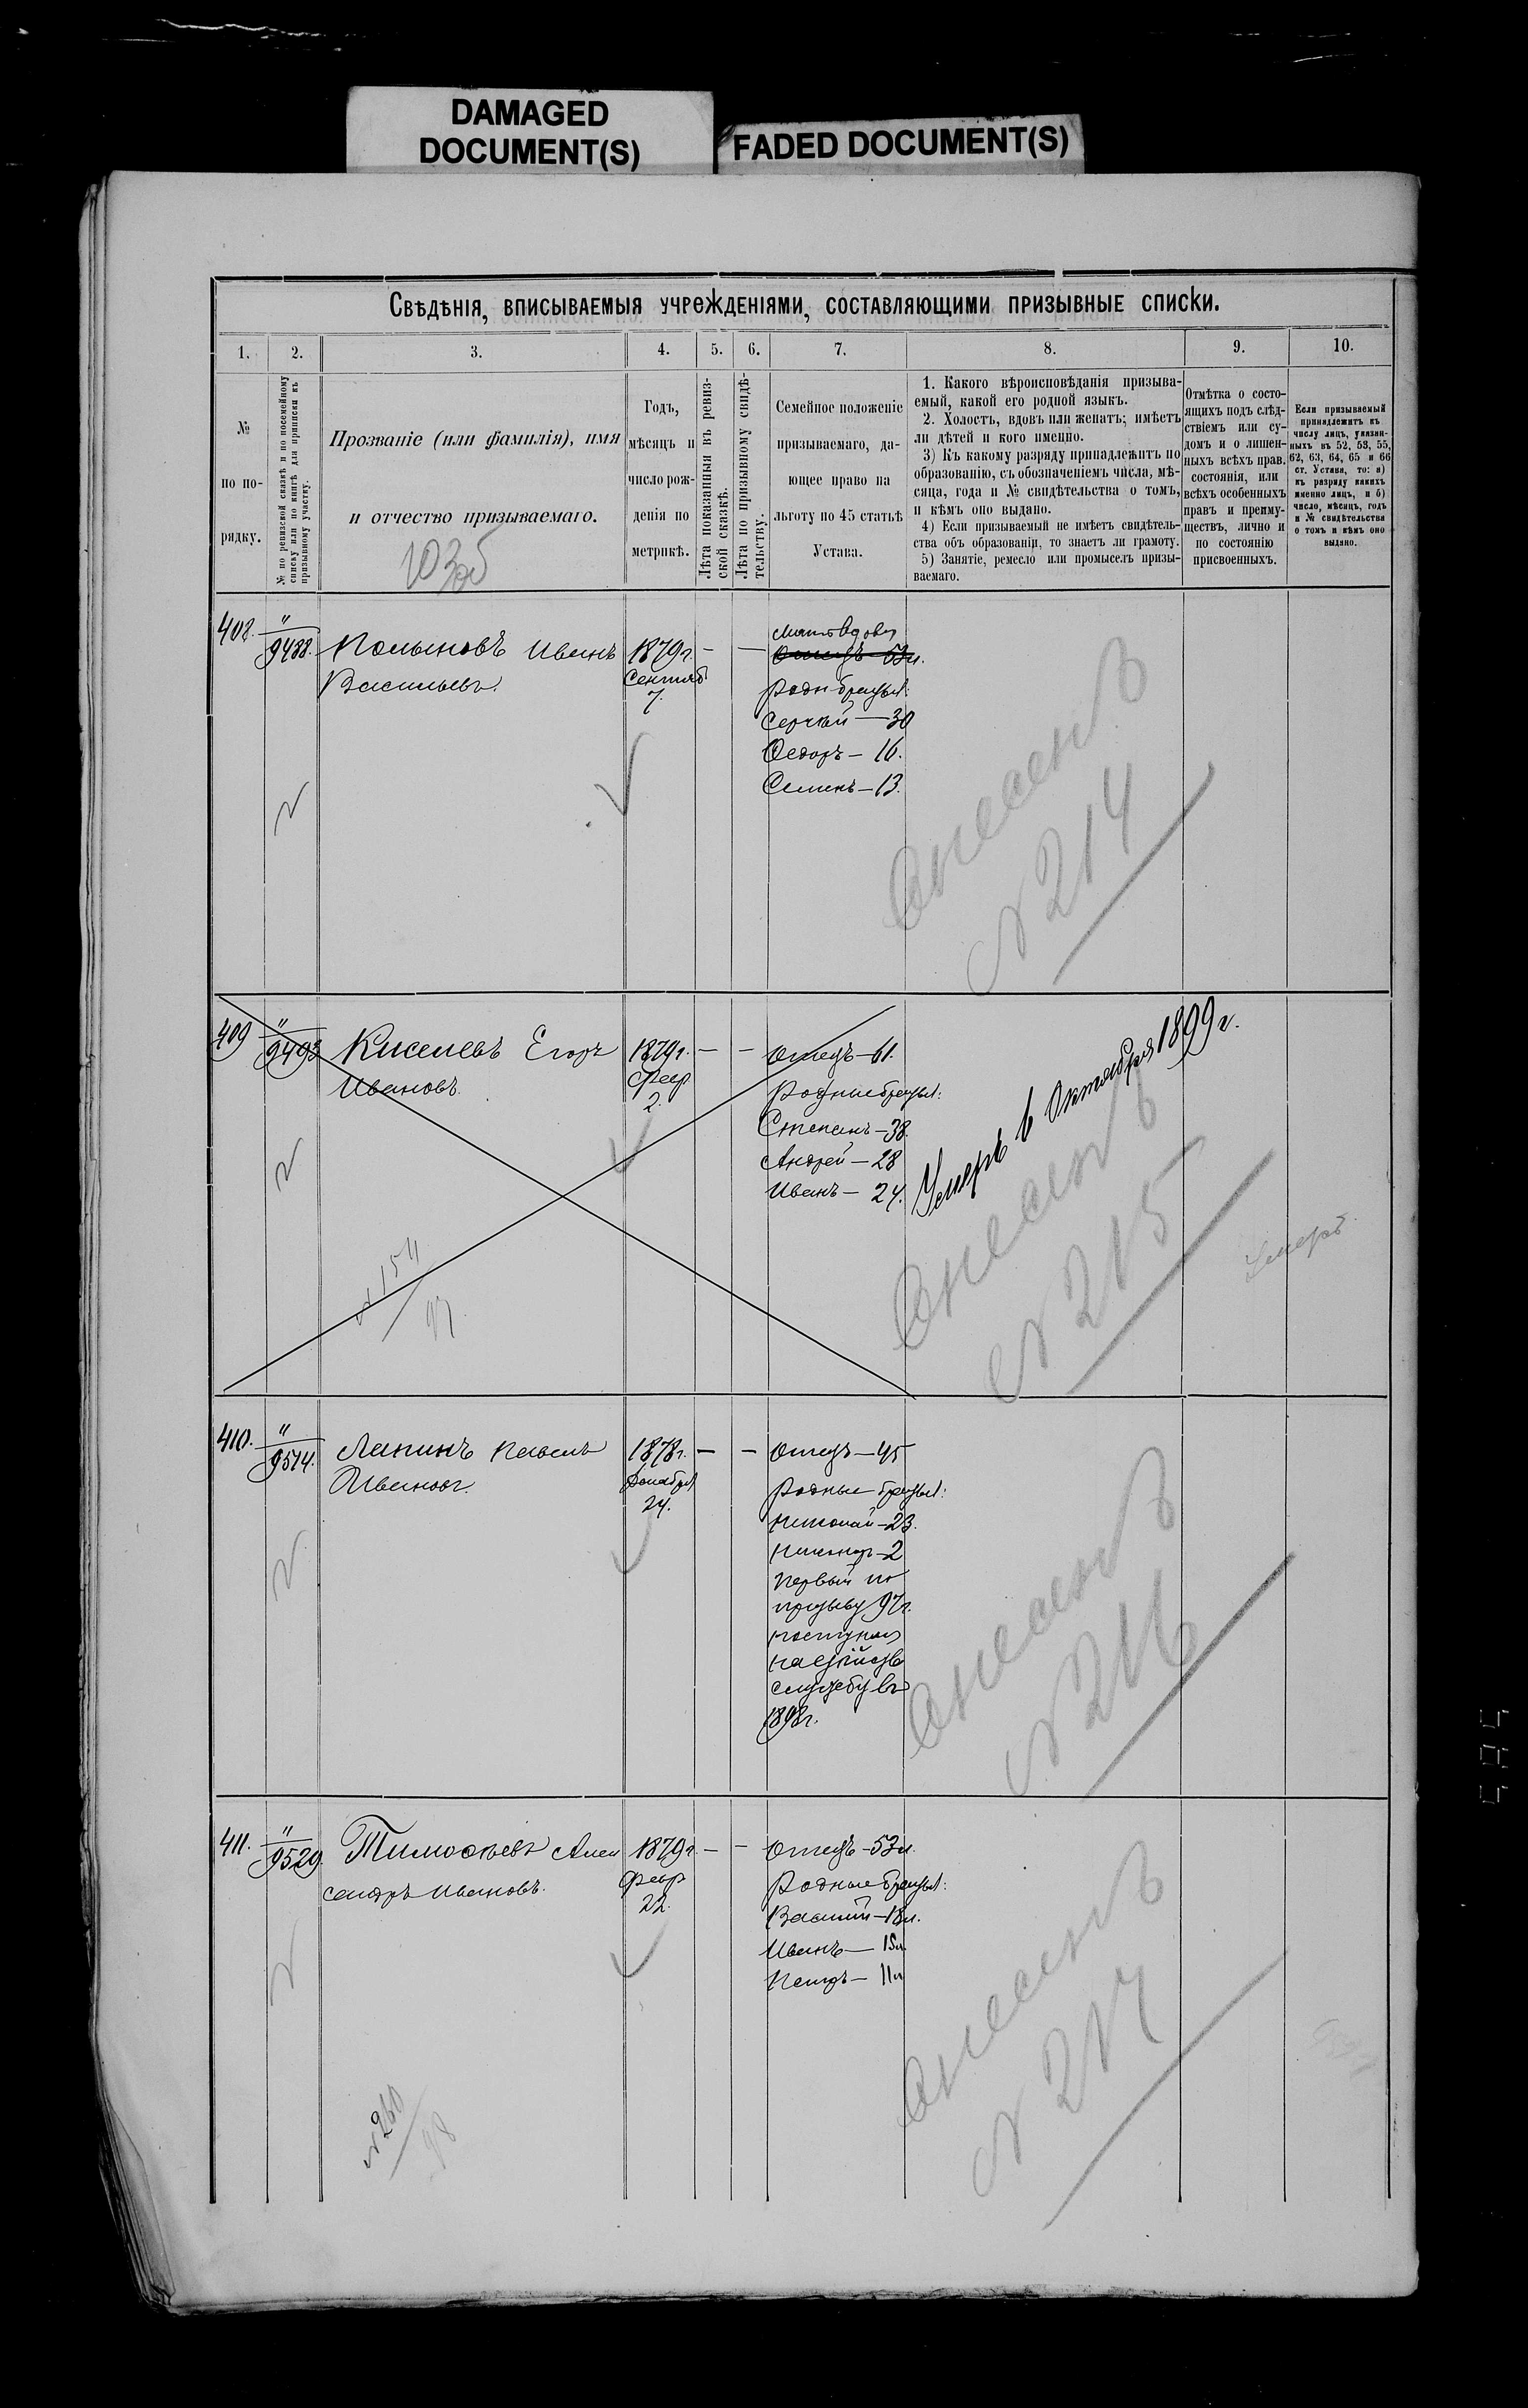 DAMAGED
DOCUMENT(S)
FADED DOCUMENT(S)
Свѣдѣнія, вписываемыя учрежденіями, составляющими призывные списки.
1. 2. 3. 4. 5. 6. 7. 8. 9. 10.
№
по по-
рядку.
№ по ревизской сказкѣ и по посемейному
списку или по книгѣ для приписки къ
призывному участку.
Прозваніе (или фамилія), имя
и отчество призываемаго.
Годъ,
мѣсяцъ и
число рож-
денія по
метрикѣ.
Лѣта показанныя въ ревиз-
ской сказкѣ.
Лѣта по призывному свидѣ-
тельству.
Семейное положеніе
призываемаго, да-
ющее право на
льготу по 45 статьѣ
Устава.
1. Какого вѣроисповѣданія призыва-
емый, какой его родной языкъ.
2. Холостъ, вдовъ или женатъ; имѣетъ
ли дѣтей и кого именно.
3) Къ какому разряду принадлежитъ по
образованію, съ обозначеніемъ числа, мѣ-
сяца, года и № свидѣтельства о томъ,
и кѣмъ оно выдано.
4) Если призываемый не имѣетъ свидѣтель-
ства объ образованіи, то знаетъ ли грамоту.
5) Занятіе, ремесло или промыселъ призы-
ваемаго.
Отмѣтка о состо-
ящихъ подъ слѣд-
ствіемъ или су-
домъ и о лишен-
ныхъ всѣхъ прав.
состоянія, или
всѣхъ особенныхъ
правъ и преиму-
ществъ, лично и
по состоянію
присвоенныхъ.
Если призываемый
принадлежитъ къ
числу лицъ, указан-
ныхъ въ 52, 53, 55,
62, 63, 64, 65 и 66
ст. Устава, то: а)
къ разряду какихъ
именно лицъ, и б)
число, мѣсяцъ, годъ
и № свидѣтельства
о томъ и кѣмъ оно
выдано.
408. "
9488. Иванъ 1879г. — —
Васильевъ.
Сентяб
7.
Мать вдова
Отецъ 53л.
Родн братья:
Сергѣй — 30
Ѳедоръ — 16.
Семенъ — 13.
Внесенъ
№ 214
409 "
9493 Киселевъ Егоръ 1879г. — — Отецъ — 61.
Ивановъ.
Февр
2.
Родные братья:
Степанъ — 38.
Андрей — 28
Иванъ — 24.
Умеръ 6 Октября 1899 г.
Внесенъ
№ 215
Умеръ
№ 154
97
410. "
9514. Лапинъ Павелъ 1878г. — — Отецъ — 45
Ивановъ.
Декабря
24.
Родные братья:
Николай — 23.
— 2
Первый по
призыву 97г.
службу въ
1898г.
Внесенъ
№ 216
411. "
9529. Тимофѣевъ Алек 1879г — — Отецъ — 53л.
сандръ Ивановъ.
Февр
22.
Родные братья:
Василій — 18л.
Иванъ — 15л
Петръ — 11л
Внесенъ
№ 217
№ 260
98